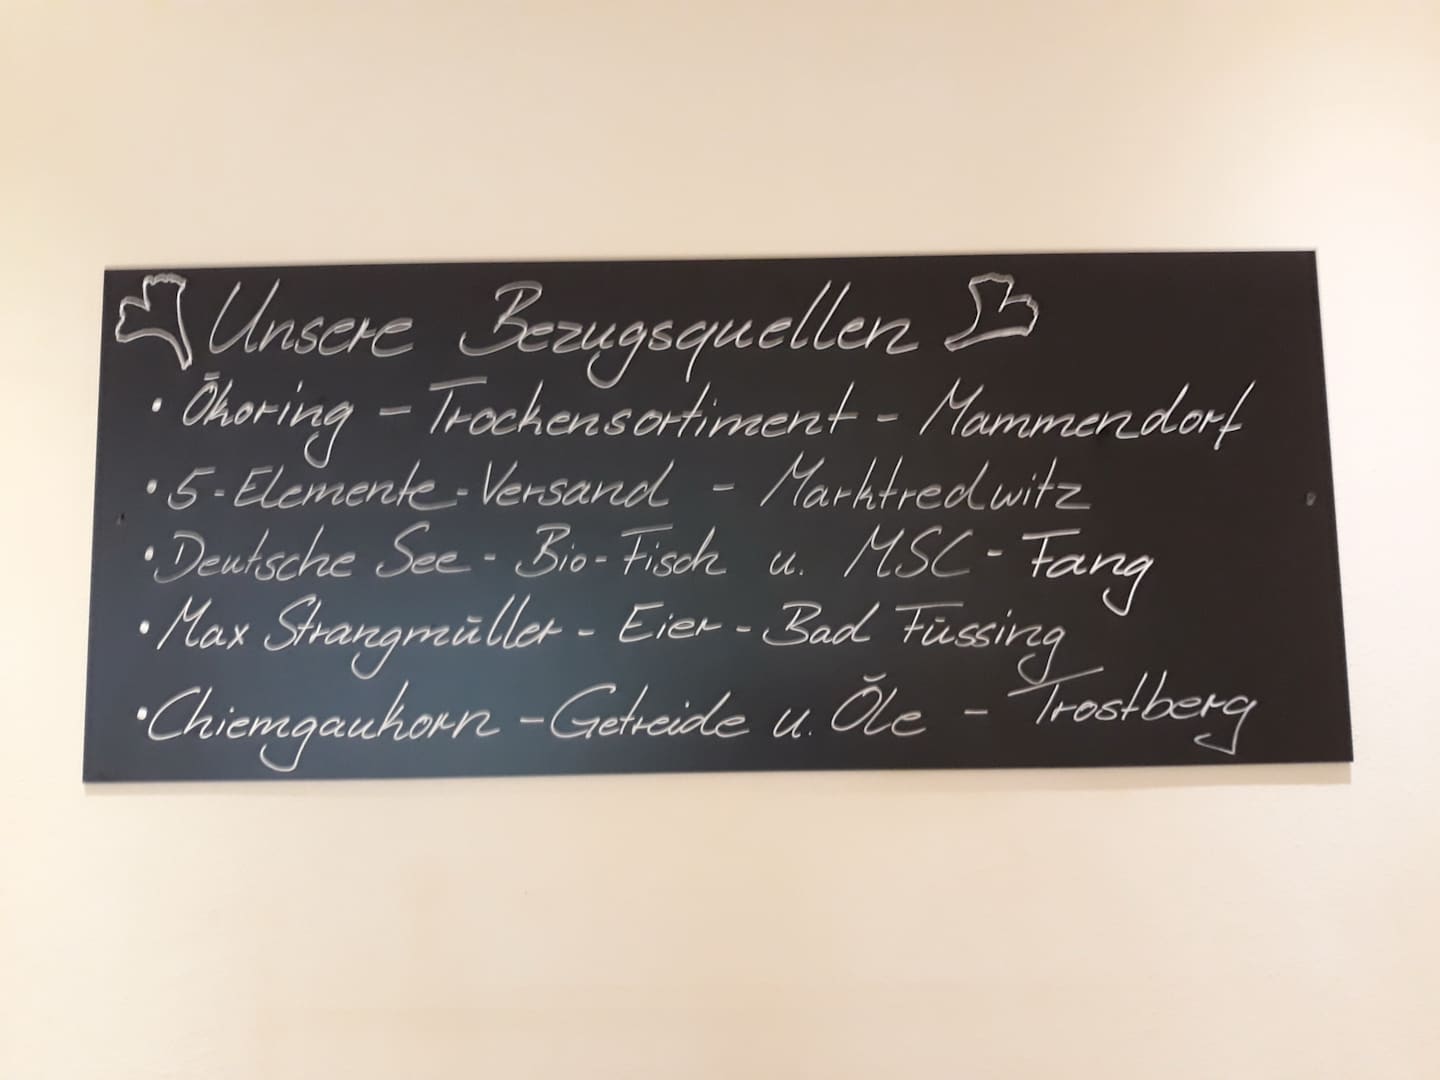 Unsere Bezugsquellen
• Ökoring - Trockensortiment - Mammendorf
• 5-Elemente-Versand - Marktredwitz
• Deutsche See - Bio-Fisch u. MSC-Fang
• Max Strangmüller - Eier - Bad Füssing
• Chiemgaukorn - Getreide u. Öle - Trostberg